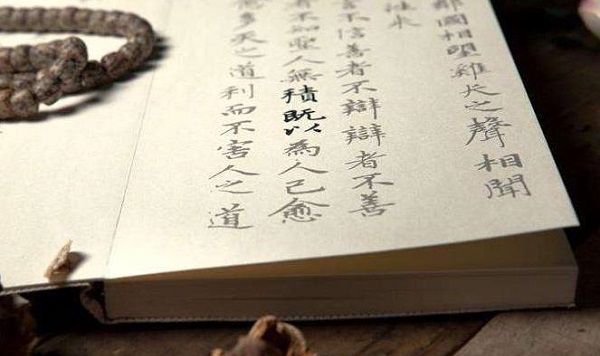 鄰國相望雞犬之聲相聞
往來
言不信善者不辯辯者不善
者不知聖人無積既以為人己愈
愈多天之道利而不害人之道